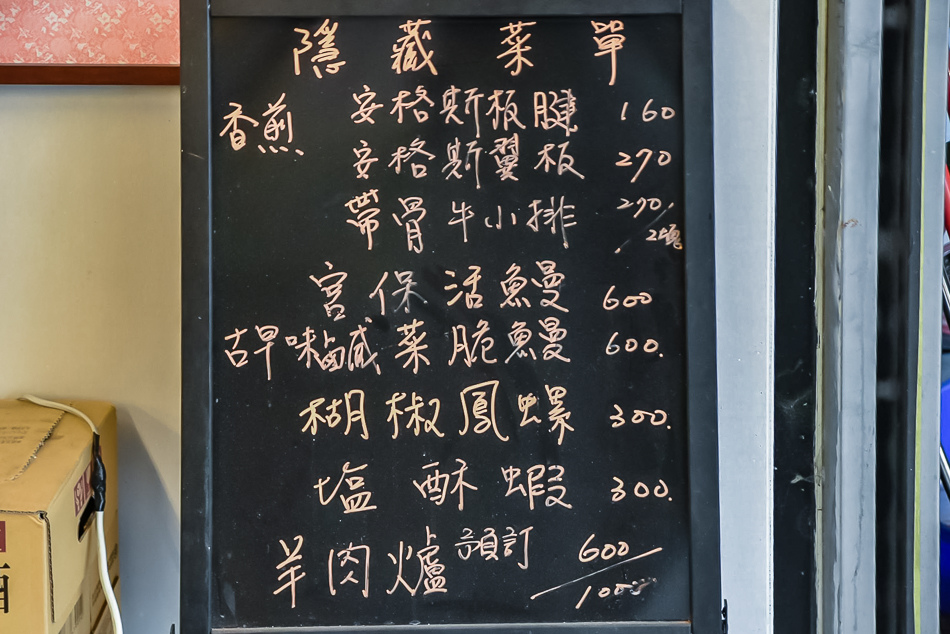 隱藏菜單
香煎 安格斯板腱 160
安格斯翼板 270
帶骨牛小排 290/2塊
宮保活鰻 600
古早味鹹菜脆鰻 600.
胡椒鳳螺 300.
塩酥蝦 300.
羊肉爐 預訂 600/1000